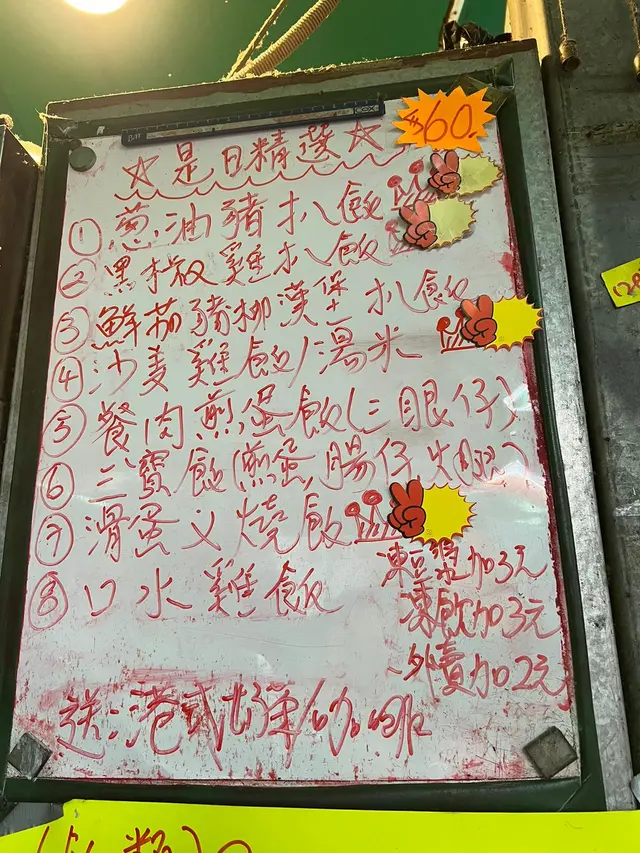 $60.
☆是日精選☆
① 葱油豬扒飯
② 黑椒雞扒飯
③ 鮮茄豬柳漢堡扒飯
④ 沙姜雞飯/湯米
⑤ 餐肉煎蛋飯(二眼仔)
⑥ 三寶飯(煎蛋,腸仔,火腿)
⑦ 滑蛋乂燒飯
⑧ 口水雞飯
凍豆漿加3元
凍飲加3元
外賣加2元
送:港式/咖啡